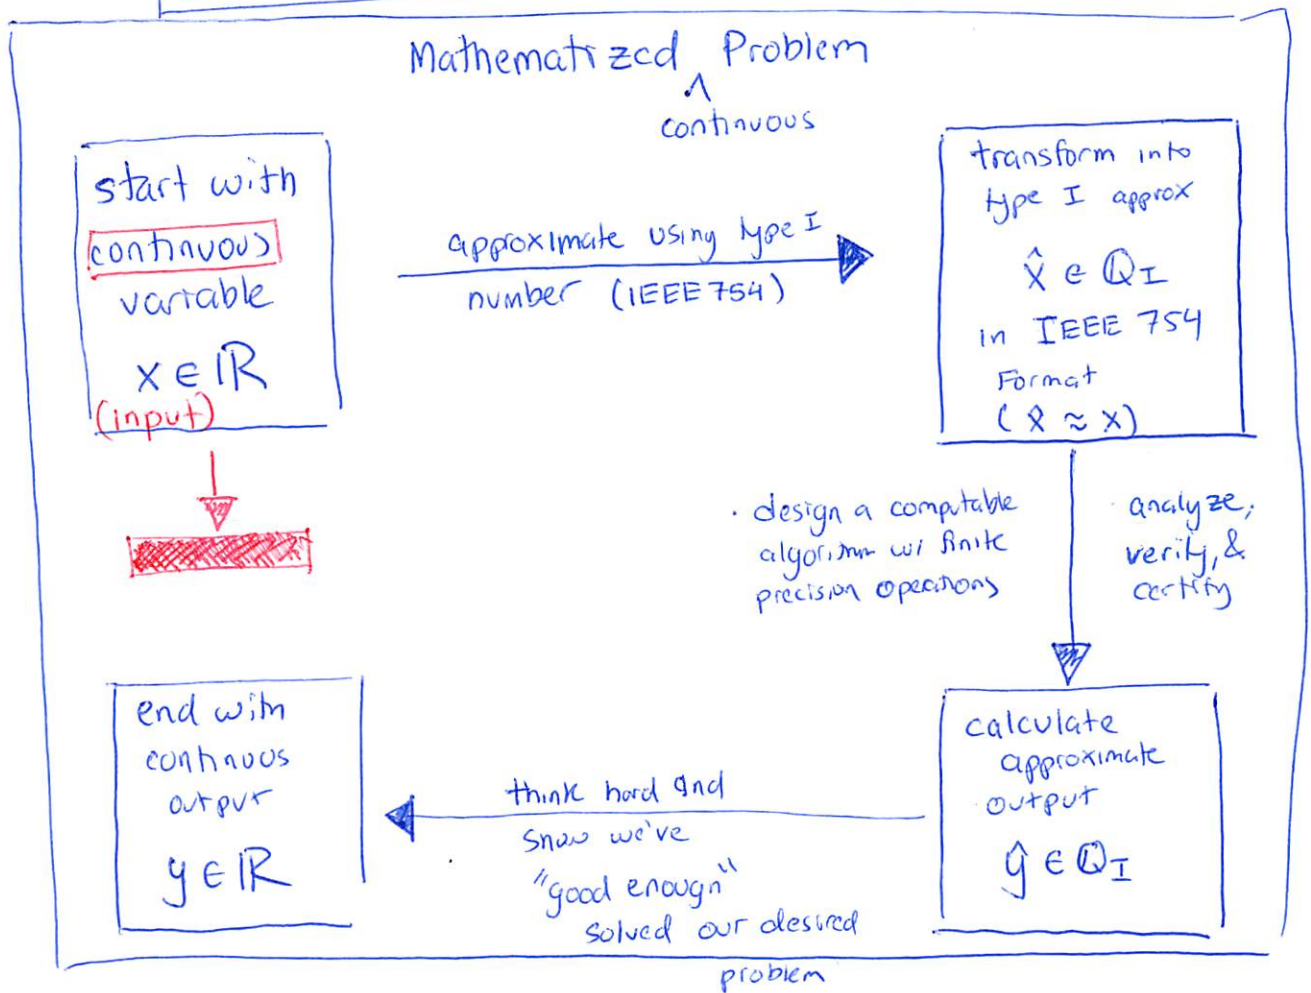 Mathematized Problem
^
continuous
start with
continuous
variable
x ∈ ℝ
(input)
approximate using type I
number (IEEE 754)
transform into
type I approx
x̂ ∈ ℚ_I
in IEEE 754
Format
(x̂ ≈ x)
· design a computable
algorithm w/ finite
precision operations
analyze,
verify, &
certify
end with
continuos
output
y ∈ ℝ
think hard and
show we've
"good enough"
solved our desired
problem
calculate
approximate
output
ŷ ∈ ℚ_I